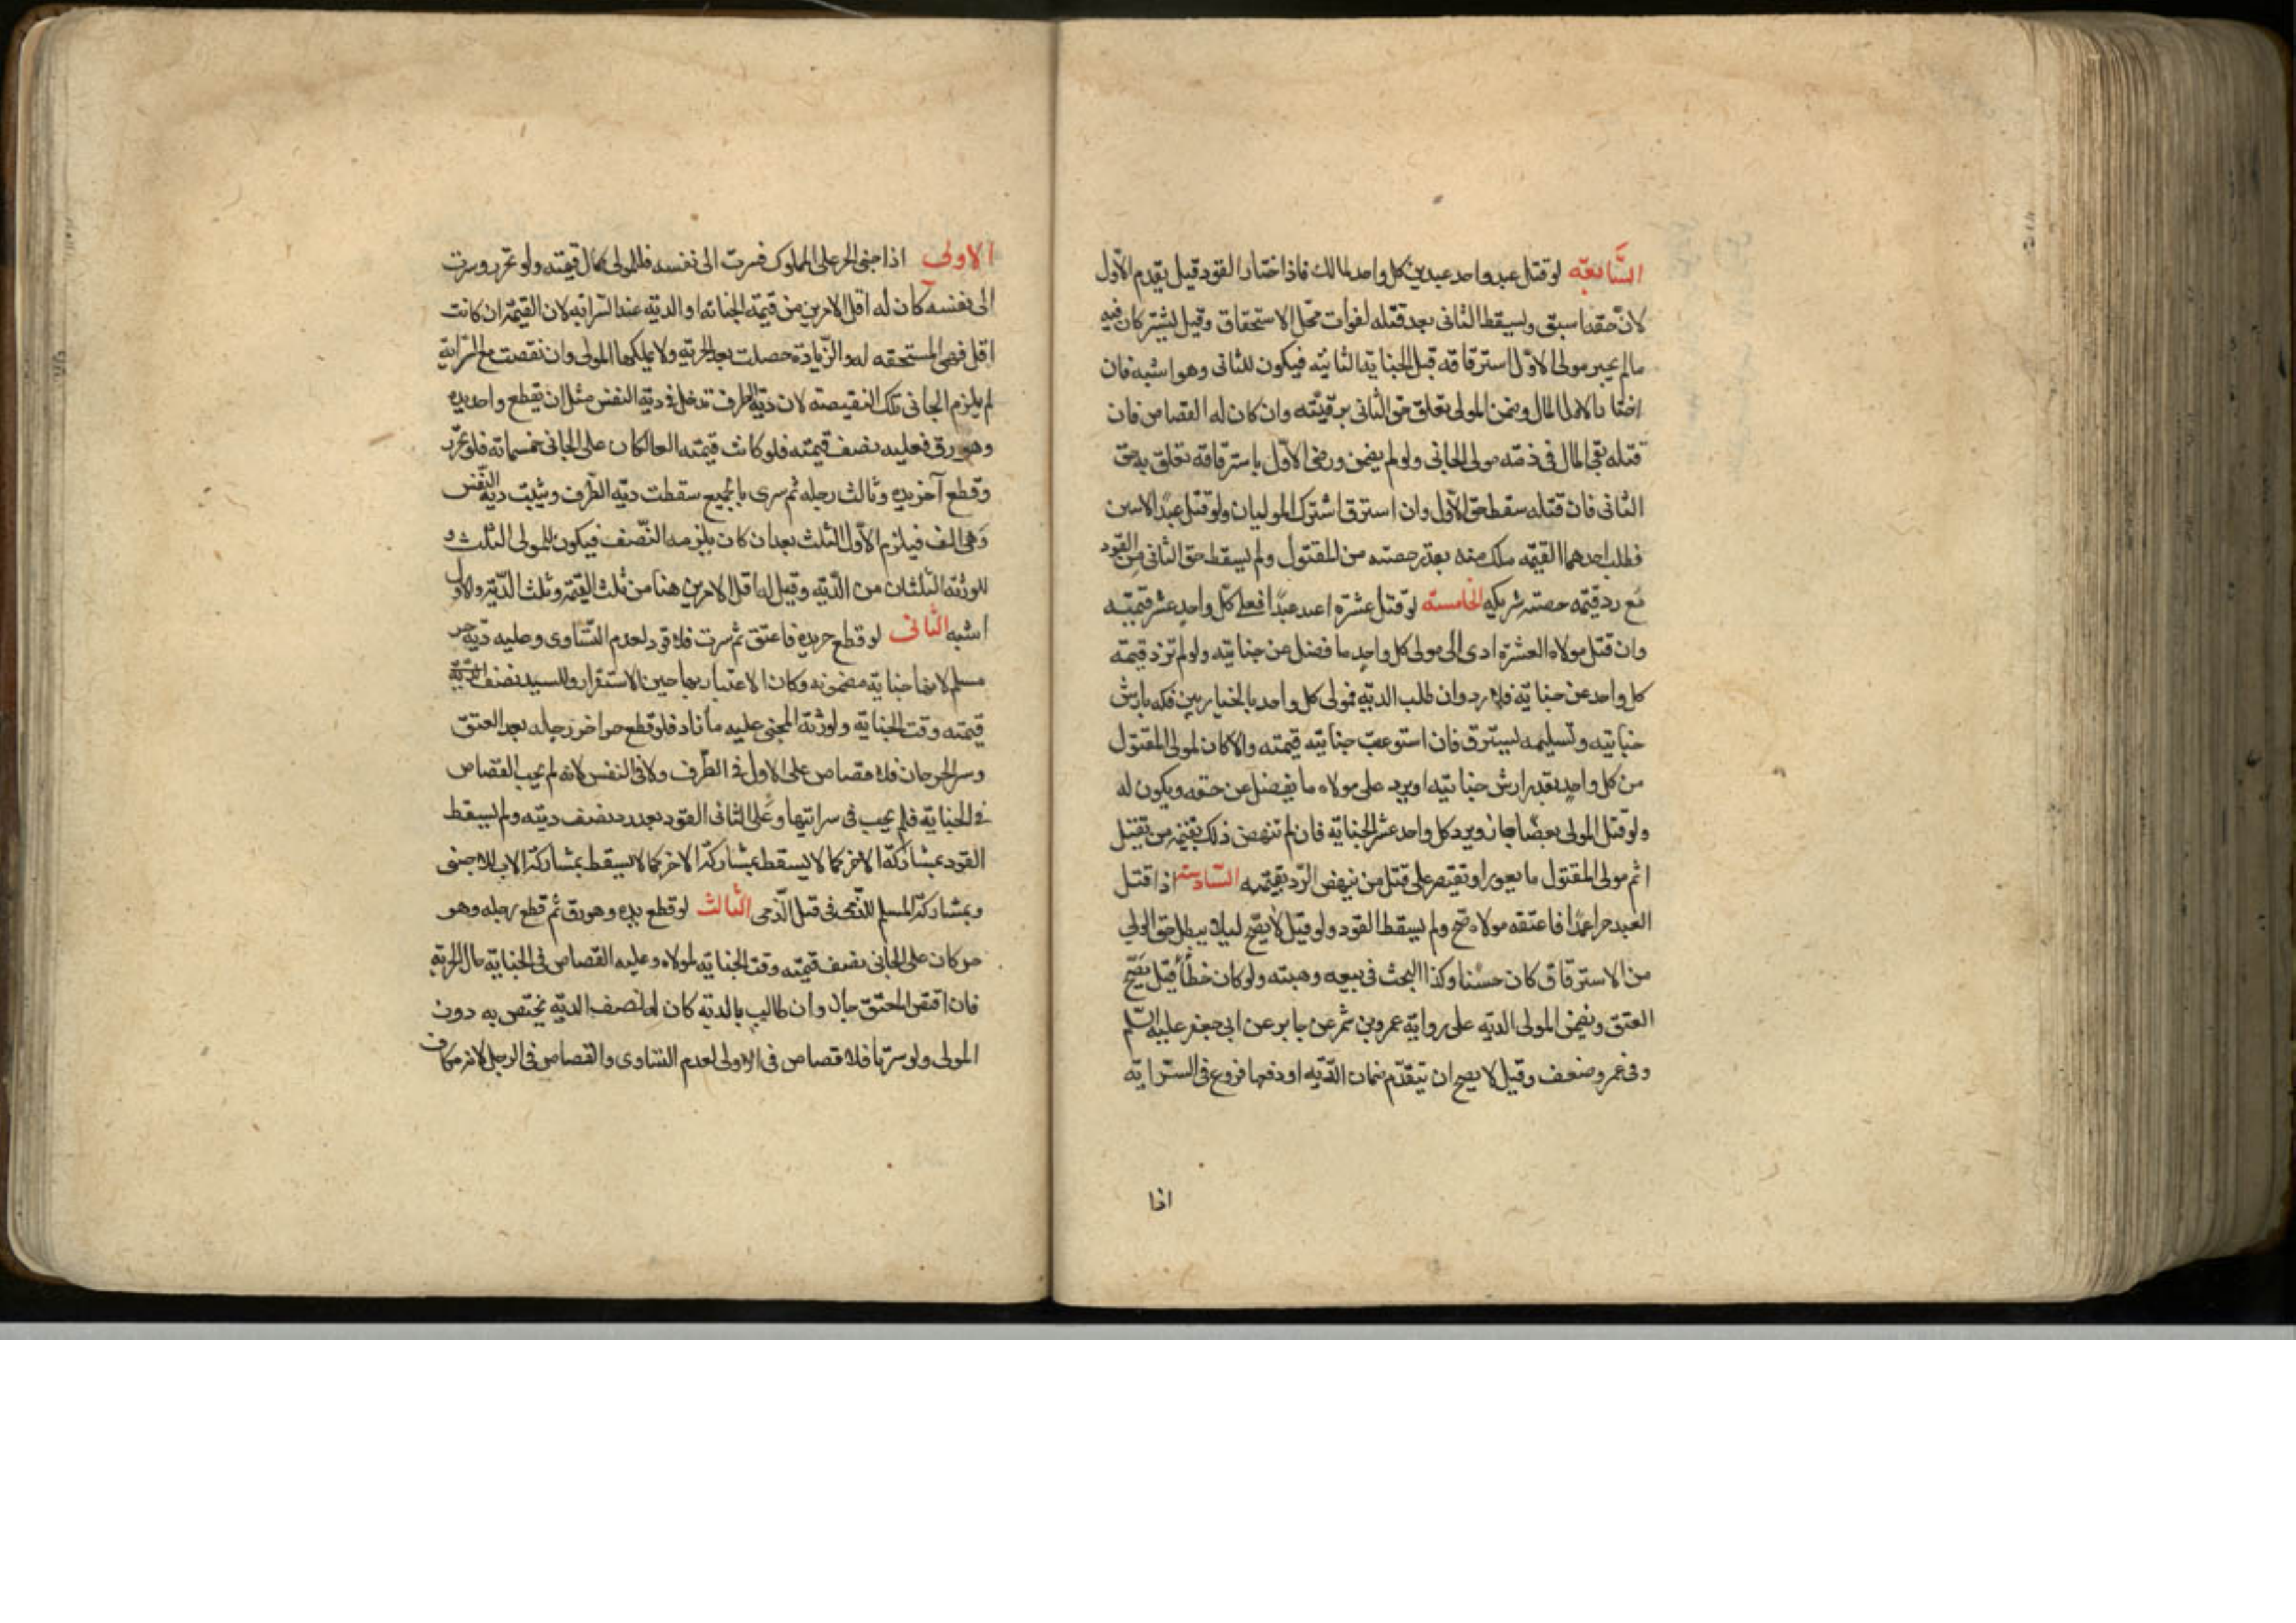 السابعة لو قتل عبد واحد عبدين كل واحد لمالك فاذا اختار القود قيل يقدم الاول
لان حقه اسبق ويسقط الثاني بعد قتله لفوات محل الاستحقاق وقيل يشتركان فيه
ما لم يختر مولى الاول استرقاقه قبل الجناية الثانية فيكون للثاني وهو اشبه فان
اختار الاول المال وضمن المولى تعلق حق الثاني برقبته وان كان له القصاص فان
قتله بقي المال في ذمته مولى الجاني ولو لم يضمن ورضي الاول باسترقاقه تعلق به حق
الثاني فان قتله سقط حق الاول وان استرق اشترك الموليان ولو قتل عبدا لاثنين
فطلب احدهما القيمة ملك منه بقدر حصته من المقتول ولم يسقط حق الثاني من القود
مع رد قيمة حصته شريكه الخامسة لو قتل عشرة اعبد عبدا فعلى كل واحد عشر قيمته
وان قتل مولاه العشرة ادى الى مولى كل واحد ما فضل عن جنايته ولو لم تزد قيمة
كل واحد عن جنايته فلا رد وان طلب الدية فمولى كل واحد بالخيار بين فكه بارش
جنايته وتسليمه ليسترق فان استوعبت جنايته قيمته والا كان لمولى المقتول
من كل واحد بقدر ارش جنايته او يرد على مولاه ما يفضل عن حقه ويكون له
ولو قتل المولى بعضا جاز ويرد كل واحد عشر الجناية فان لم تنهض ذلك بقيمة من يقتل
اتم مولى المقتول ما يعوز او تقتصر على قتل من ينهض الرد بقيمته السادسة اذا قتل
العبد حرا عمدا فاعتقه مولاه صح ولم يسقط القود ولو قيل لا يصح لئلا يبطل حق الولي
من الاسترقاق كان حسنا وكذا البحث في بيعه وهبته ولو كان خطأ قيل يصح
العتق ويضمن المولى الدية على رواية عمرو بن شمر عن جابر عن ابي جعفر عليه السلم
وفي عمرو ضعف وقيل لا يصح ان يتقدم ضمان الدية او دفعها فروع في السراية
اذا
الاولى اذا جنى الحر على المملوك فسرت الى نفسه فللمولى كمال قيمته ولو تحرر وسرت
الى نفسه كان له اقل الامرين من قيمة الجناية او الدية عند السراية لان القيمة ان كانت
اقل فهي المستحقه له والزيادة حصلت بعد الحرية ولا يملكها المولى وان نقصت مع السراية
لم يلزم الجاني تلك النقيصة لان دية الطرف تدخل في دية النفس مثل ان يقطع واحد يده
وهو رق فعليه نصف قيمته فلو كانت قيمته الفا لكان على الجاني خمسمائة فلو تحرر
وقطع آخر يده وثالث رجله ثم سرى بالجميع سقطت دية الطرف ويثبت دية النفس
وهي الف فيلزم الاول الثلث بعد ان كان يلزمه النصف فيكون للمولى الثلث و
للورثة الثلثان من الدية وقيل له اقل الامرين هنا من ثلث القيمة وثلث الدية والاول
اشبه الثاني لو قطع حر يده فاعتق ثم سرت فلا قود لعدم التساوي وعليه دية حر
مسلم لانها جناية مضمونه وكان الاعتبار بها حين الاستقرار وللسيد نصف
قيمته وقت الجناية ولورثة المجني عليه ما زاد فلو قطع حر اخر رجله بعد العتق
وسرى الجرحان فلا قصاص على الاول في الطرف ولا في النفس لانه لم يجب القصاص
في الجناية فلم يجب في سرايتها وعلى الثاني القود بعد رد نصف ديته ولم يسقط
القود بمشاركة الاخر كما لا يسقط بمشاركة الاخر كما لا يسقط بمشاركة الاب للاجنبي
وبمشاركة المسلم للذمي في قتل الذمي الثالث لو قطع يده وهو رق ثم قطع رجله وهو
حر كان على الجاني نصف قيمته وقت الجناية لمولاه وعليه القصاص في الجناية حال الحرية
فان اقتص المعتق جاز وان طالب بالدية كان له نصف الدية يختص به دون
المولى ولو سرتا فلا قصاص في الاولى لعدم التساوي والقصاص في الرجل لانه مكاف